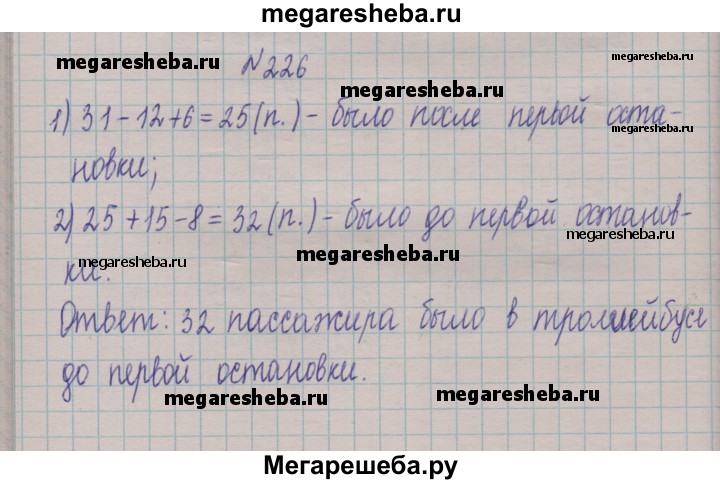 megaresheba.ru
megaresheba.ru
№226
megaresheba.ru
megaresheba.ru
1) 31-12+6=25(п.)- было после первой оста-
megaresheba.ru
новки;
2) 25+15-8=32(п.)- было до первой останов-
megaresheba.ru
megaresheba.ru
megaresheba.ru
ки.
Ответ: 32 пассажира было в троллейбусе
до первой остановки.
megaresheba.ru
megaresheba.ru
Мегарешеба.ру